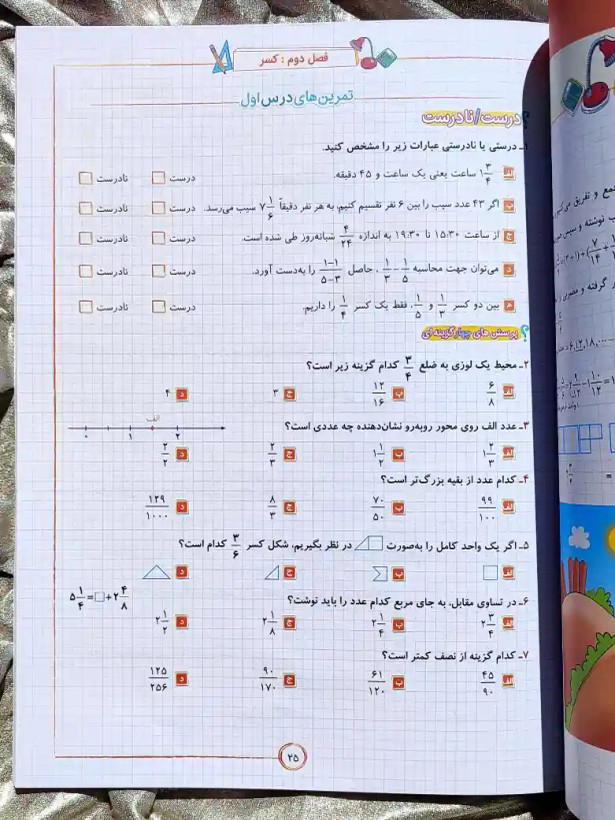 فصل دوم : کسر
تمرین‌های درس اول
درست/نادرست
۱ـ درستی یا نادرستی عبارات زیر را مشخص کنید.
الف ۱ ۳/۴ ساعت یعنی یک ساعت و ۴۵ دقیقه. درست نادرست
ب اگر ۴۳ عدد سیب را بین ۶ نفر تقسیم کنیم، به هر نفر دقیقاً ۷ ۱/۶ سیب می‌رسد. درست نادرست
ج از ساعت ۱۵:۳۰ تا ۱۹:۳۰ به اندازه ۴/۲۴ شبانه‌روز طی شده است. درست نادرست
د می‌توان جهت محاسبه ۱/۵ - ۱/۳، حاصل ۱-۱/۵-۳ را به‌دست آورد. درست نادرست
ه بین دو کسر ۱/۳ و ۱/۵، فقط یک کسر ۱/۴ را داریم. درست نادرست
پرسش های چهارگزینه ای
۲ـ محیط یک لوزی به ضلع ۳/۴ کدام گزینه زیر است؟
الف ۶/۸ ب ۱۲/۱۶ ج ۳ د ۴
۳ـ عدد الف روی محور روبه‌رو نشان‌دهنده چه عددی است؟
الف
۰ ۱ ۲
الف ۱ ۲/۳ ب ۱ ۱/۲ ج ۲/۳ د ۲/۲
۴ـ کدام عدد از بقیه بزرگ‌تر است؟
الف ۹۹/۱۰۰ ب ۷۰/۵۰ ج ۸/۳ د ۱۲۹/۱۰۰۰
۵ـ اگر یک واحد کامل را به‌صورت در نظر بگیریم، شکل کسر ۳/۶ کدام است؟
الف ب ج د
۶ـ در تساوی مقابل، به جای مربع کدام عدد را باید نوشت؟
۵ ۱/۴ = □ + ۲ ۴/۸
الف ۲ ۳/۴ ب ۲ ۱/۴ ج ۲ ۱/۸ د ۲ ۱/۲
۷ـ کدام گزینه از نصف کمتر است؟
الف ۴۵/۹۰ ب ۶۱/۱۲۰ ج ۹۰/۱۷۰ د ۱۲۵/۲۵۶
۲۵